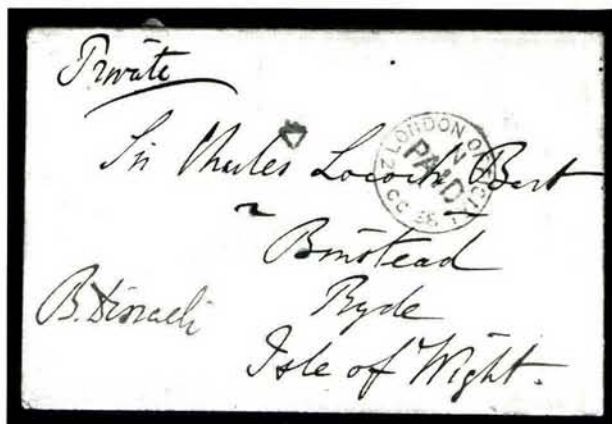 Private
Sir Charles Locock Bart
Binstead
Ryde
Isle of Wight.
B. Disraeli
LONDON OFFICIAL
PAID